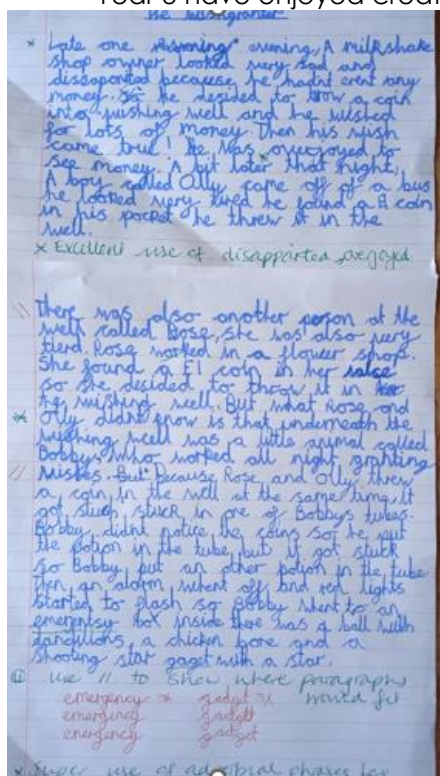 have enjoyed
The wishgranter
* Late one evening, A milkshake
shop owner looked very sad and
disapointed because he hadnt erent any
money. So he decided to trow a coin
into wishing well and he wished
for lots of money. Then his wish
came true! He was overjoyed to
see money. A bit later that night,
A boy called Olly came off of a bus
he looked very tired he found a £ coin
in his pocket he threw it in the
well.
* Excellent use of disapparted, overjoyed
// There was also another person at the
well called Rose, she was also very
tierd. Rose worked in a flower shop.
She found a £1 coin in her
so she decided to throw it in
the wishing well. But what Rose and
* Olly didnt know is that underneath the
wishing well was a little animal called
Bobby, who worked all night granting
// wishes. But Because Rose and Olly threw
a coin in the well at the same time, It
got stuck in one of Bobbys tubes.
Bobby didnt notice the coins so he put
the potion in the tube, but it got stuck
so Bobby put an other potion in the tube.
Then an alarm whent off and red lights
started to flash so Bobby whent to an
emergentsy box inside there was a ball with
dandilions, a chicken bone and a
shooting star gaget with a star.
@ use // to show where paragraphs
would fit
emergency gadget
emergincy gadget
energency gadget
* Super use of adverbial phrases